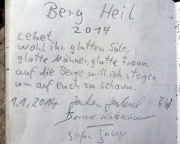 Berg Heil
2014
Lebet
wohl ihr glatten Säle,
glatte Männer, glatte Frauen
auf die Berge will ich steigen
um auf euch zu schaun.
1.1.2014
Stefan